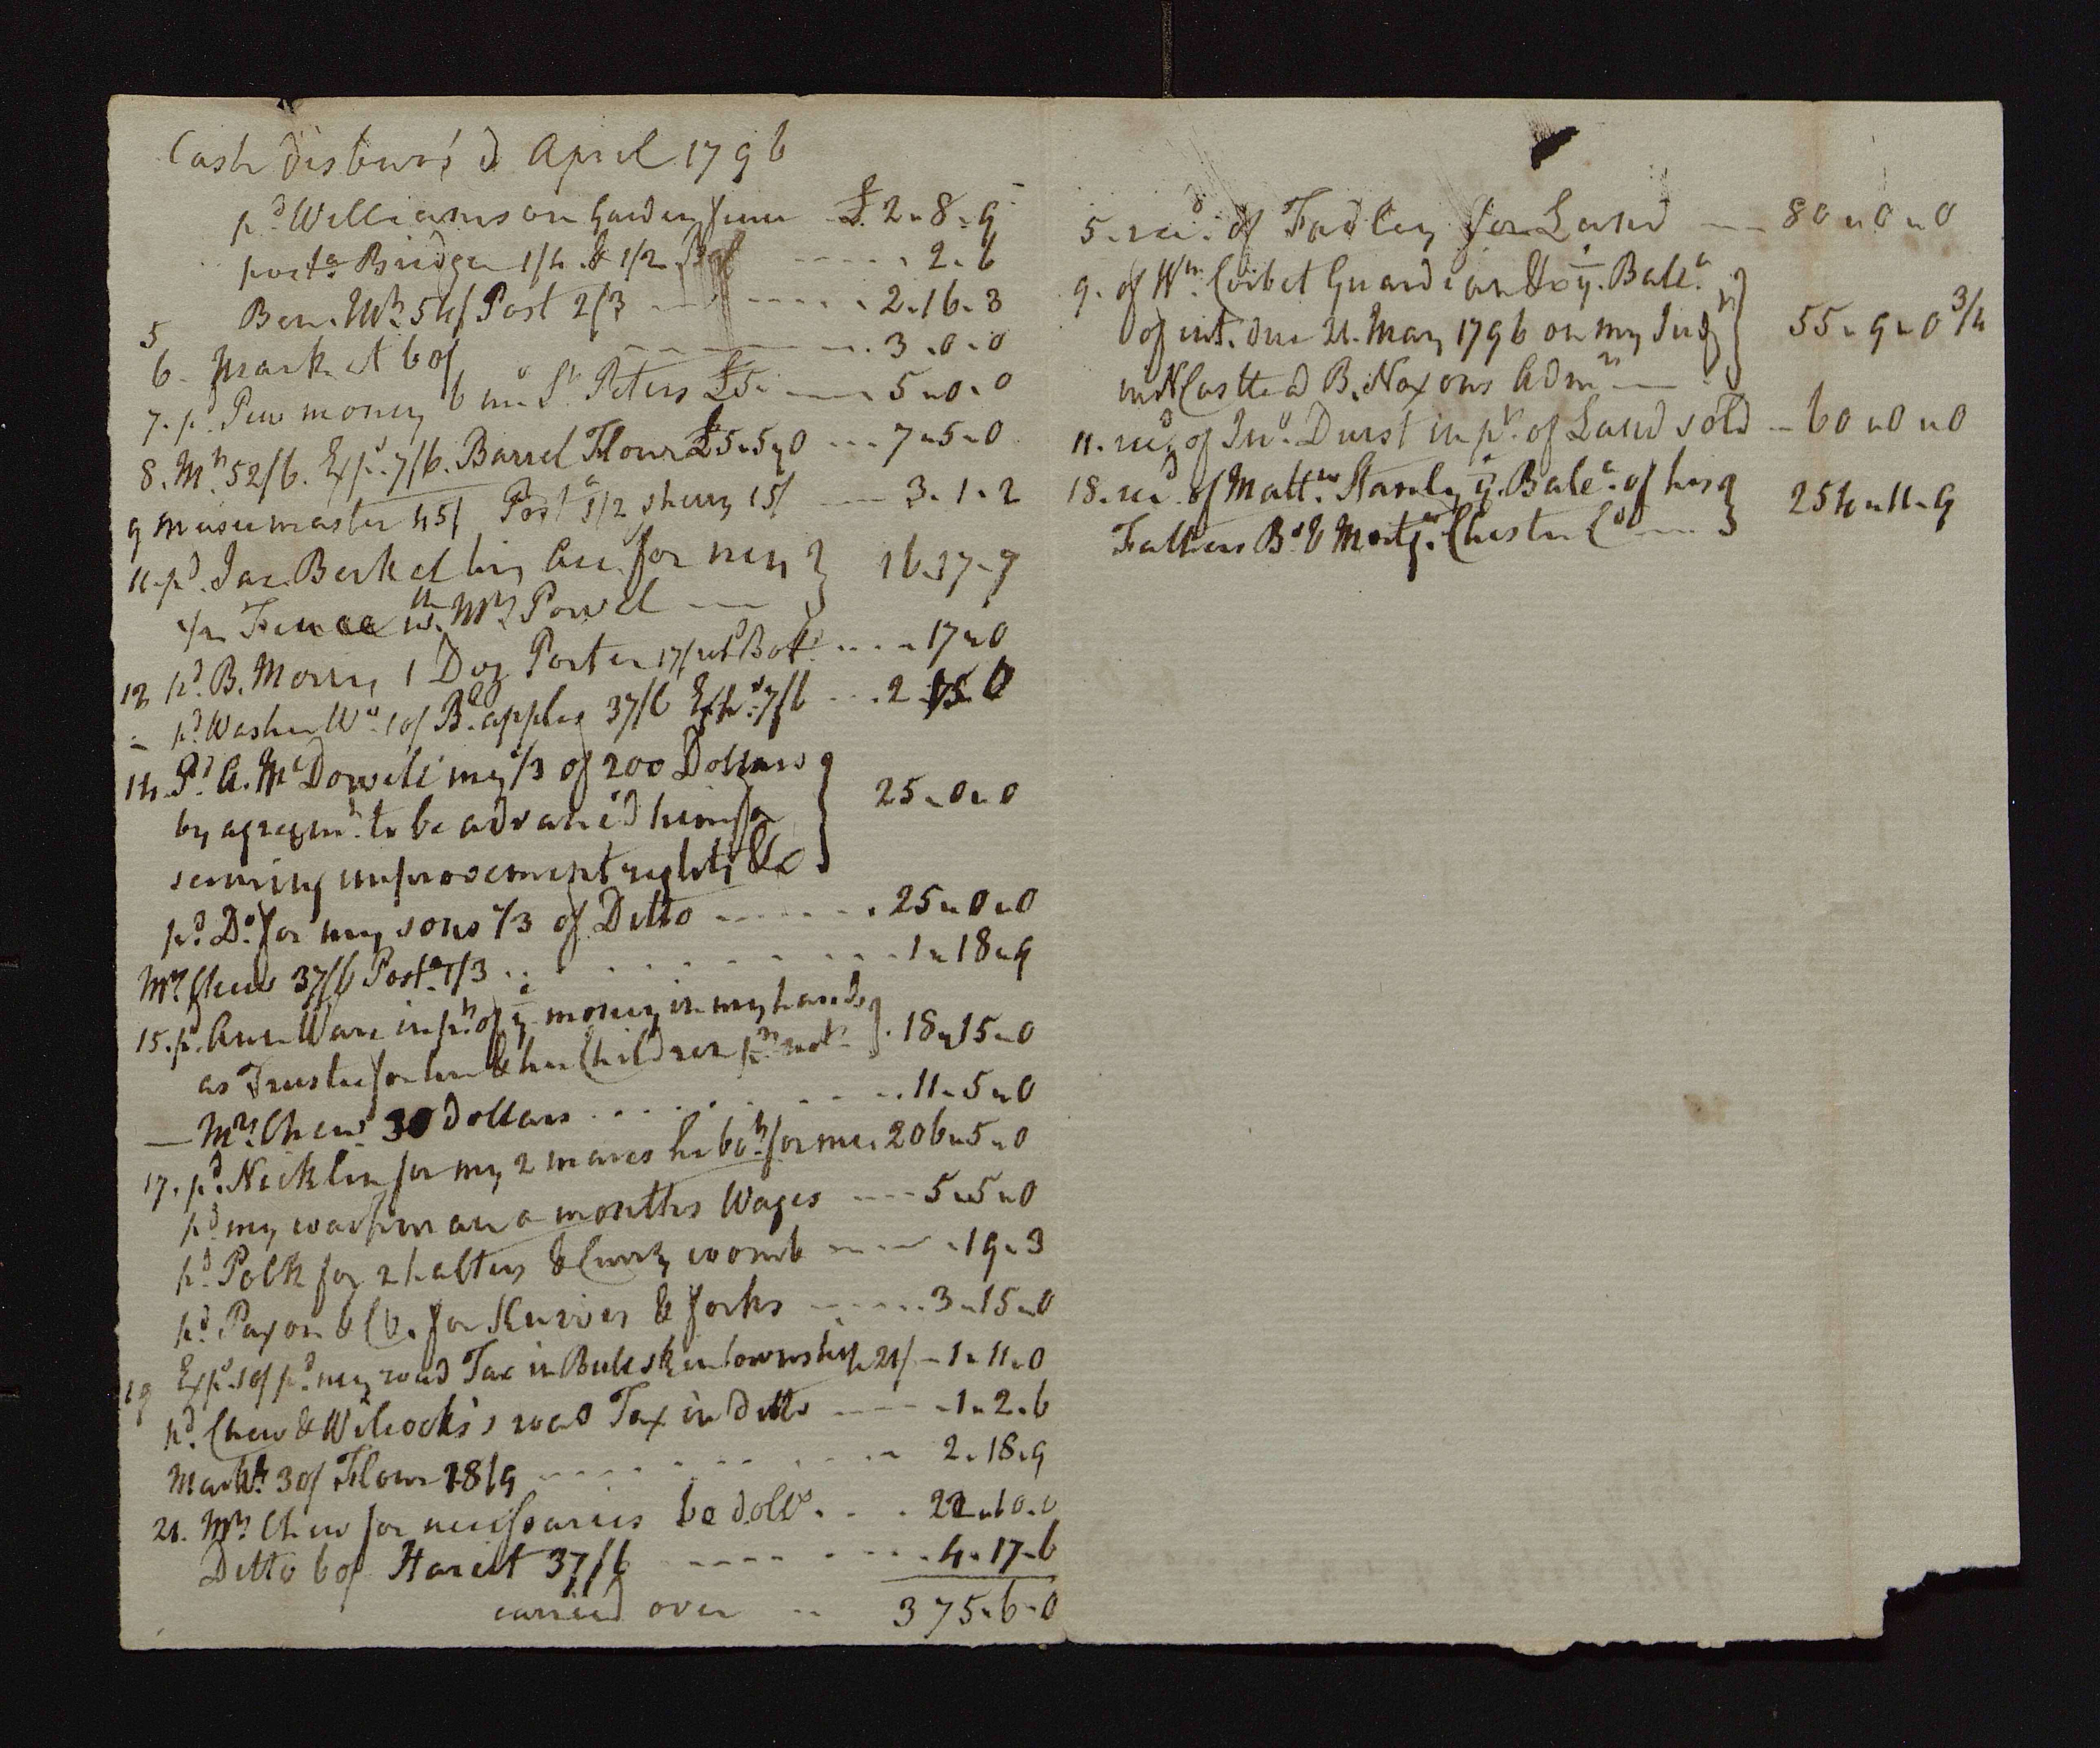 Cash disburs'd April 1796
pd Williams on Garden fence £ 2 " 8 " 9
posta Bridge 1/4 & 1/2 .. 2 " 6
5 Ben. Wm 54/ Post 2/3 .. 2 " 16 " 3
6 - Market 60/ .. 3 " 0 " 0
7. pd Pew money 6 mo St Peters £5 .. 5 " 0 " 0
8. Mr 52/6. Exps 7/6. Barrel Flour £5 " 5 " 0 ... 7 " 5 " 0
9 Musicmaster 45/ Posta 1/2 sherry 15/ .. 3 " 1 " 2
11. pd Jac. Berkel his Acc for my } 16 " 17 " 7
1/2 Fence wth Mrs Powel
12 pd B. Morris 1 Doz Porter 17/ retd Bot .... 17 " 0
- pd Washer Wo 10/ Bl apples 37/6 Exps 7/6 ... 2 " 15 " 0
14. Pd A. McDowell my 1/3 of 200 Dollars
by agreemt to be advanc'd him for } 25 " 0 " 0
securing improvement rights &c
pd Do for my sons 1/3 of Ditto .. 25 " 0 " 0
Mrs Chew 37/6 Posta 1/3 .. 1 " 18 " 9
15. pd Ann Ware in pt of ye money in my hands }
as Trustee for her & her Children pr rect } 18 " 15 " 0
— Mrs Chew 30 Dollars .. 11 " 5 " 0
17. pd Nicklin for my 2 mares he bot for me. 206 " 5 " 0
pd my coachman a months Wages .. 5 " 5 " 0
pd Polk for 2 halters & Curry comb .. 19 " 3
pd Paxon & Co. for Knives & forks .. 3 " 15 " 0
19 Exps 10/ pd my road Tax in Bullskin township 21/ - 1 " 11 " 0
pd Chew & Wilcocks's road Tax in ditto .. 1 " 2 " 6
Markt 30/ Flour 28/9 .. 2 " 18 " 9
21. Mrs Chew for necessaries 60 dolls .. 22 " 10 " 0
Ditto 60/ Hariet 37/6 .. 4 " 17 " 6
carried over .. 375 " 6 " 0
5. recd of Fadley for Land — 80 " 0 " 0
9. of Wm Corbet Guardian &c ye Balca
of int. due 21. May 1796 on my Judgt } 55 " 9 " 0 3/4
in NCastle a B. Noxons Admrs —
11. recd of Jno Durst in pt of Land sold - 60 " 0 " 0
18. recd of Mattw Stanly ye Balca of his }
Fathers Bd & Mortg. Chester Co .. } 254 " 11 " 9